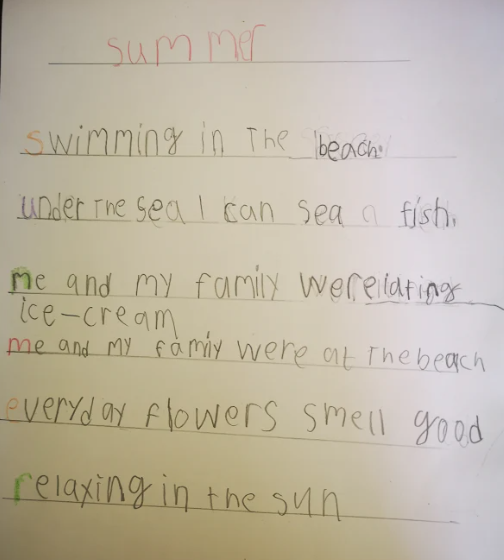 summer
swimming in The beach.
under The sea I can sea a fish.
me and my family were eating
ice-cream
me and my family were at The beach
everyday flowers smell good
relaxing in the sun